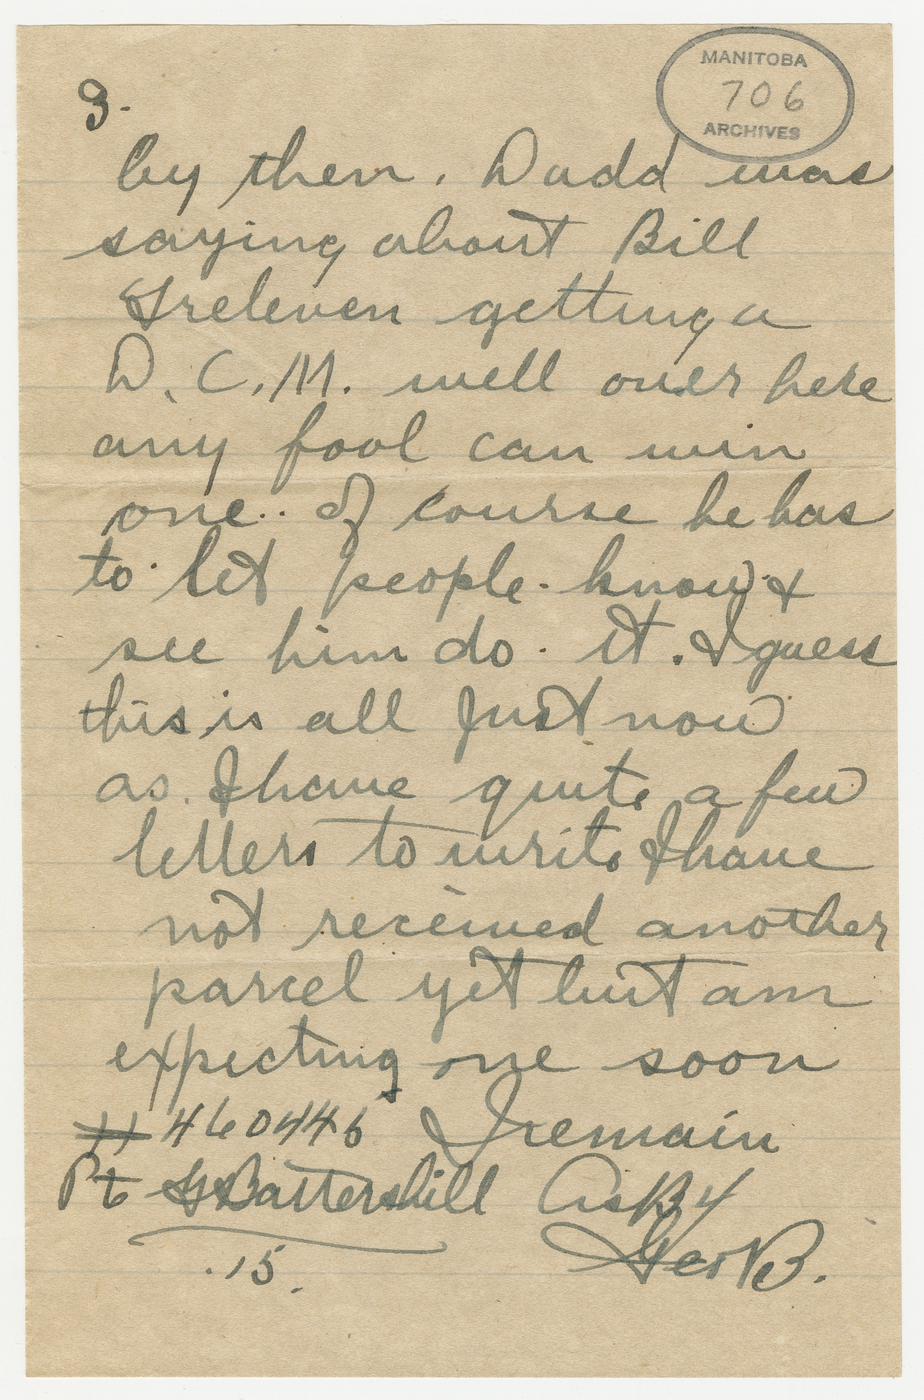 MANITOBA
706
ARCHIVES
3.
by then. Dadd was
saying about Bill
Treleven getting a
D.C.M. well over here
any fool can win
one.. of course he has
to let people know &
see him do it. I guess
this is all just now
as I have quite a few
letters to write I have
not received another
parcel yet but am
expecting one soon
# 460446 I remain
Pt G Battershill As B4
Geo B.
.15.